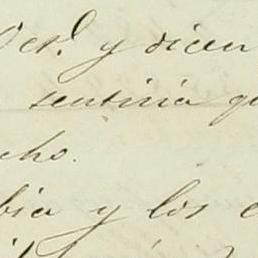 Oct.e y dicen
sentiria qu
cho.
bia y los c